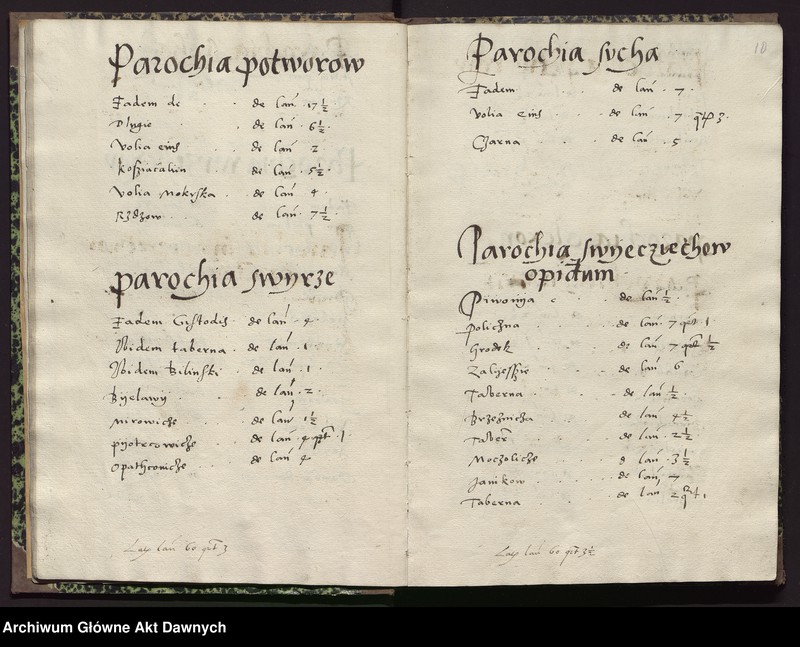 Parochia potworow
Eadem de de lań 17 ½
Dlugie de lań 6 ½
Volia eius de lań 2
de lań 5 ½
Volia Mokrska de lań 4
Rdzow de lań 7 ½
parochia swyrze
Eadem Custodis de lań 4
Ibidem taberna de lań 1
Ibidem Bilinski de lań 1
Byelawy de lań 2
Mirowicze de lań 1 ½
pyotrcowicze de lań 4 qrt 1
opathcowicze de lań 4
lań 60 qrt 3
10
Parochia sucha
Eadem de lań 7
Volia eius de lań 7 qrt 3
Czarna de lań 5
Parochia swyeczyechow
opidum
Piwonya de lań ½
policzna de lań 7 qrt 1
Grodek de lań 7 qrt ½
Zalyesszie de lań 6
Taberna de lań ½
Brzeznicza de lań 4 ½
Taber de lań 2 ½
Moczolicze d lań 3 ½
Janikow de lań 7
Taberna de lań 2 qrt 1
lań 60 qrt 3 ½
Archiwum Główne Akt Dawnych